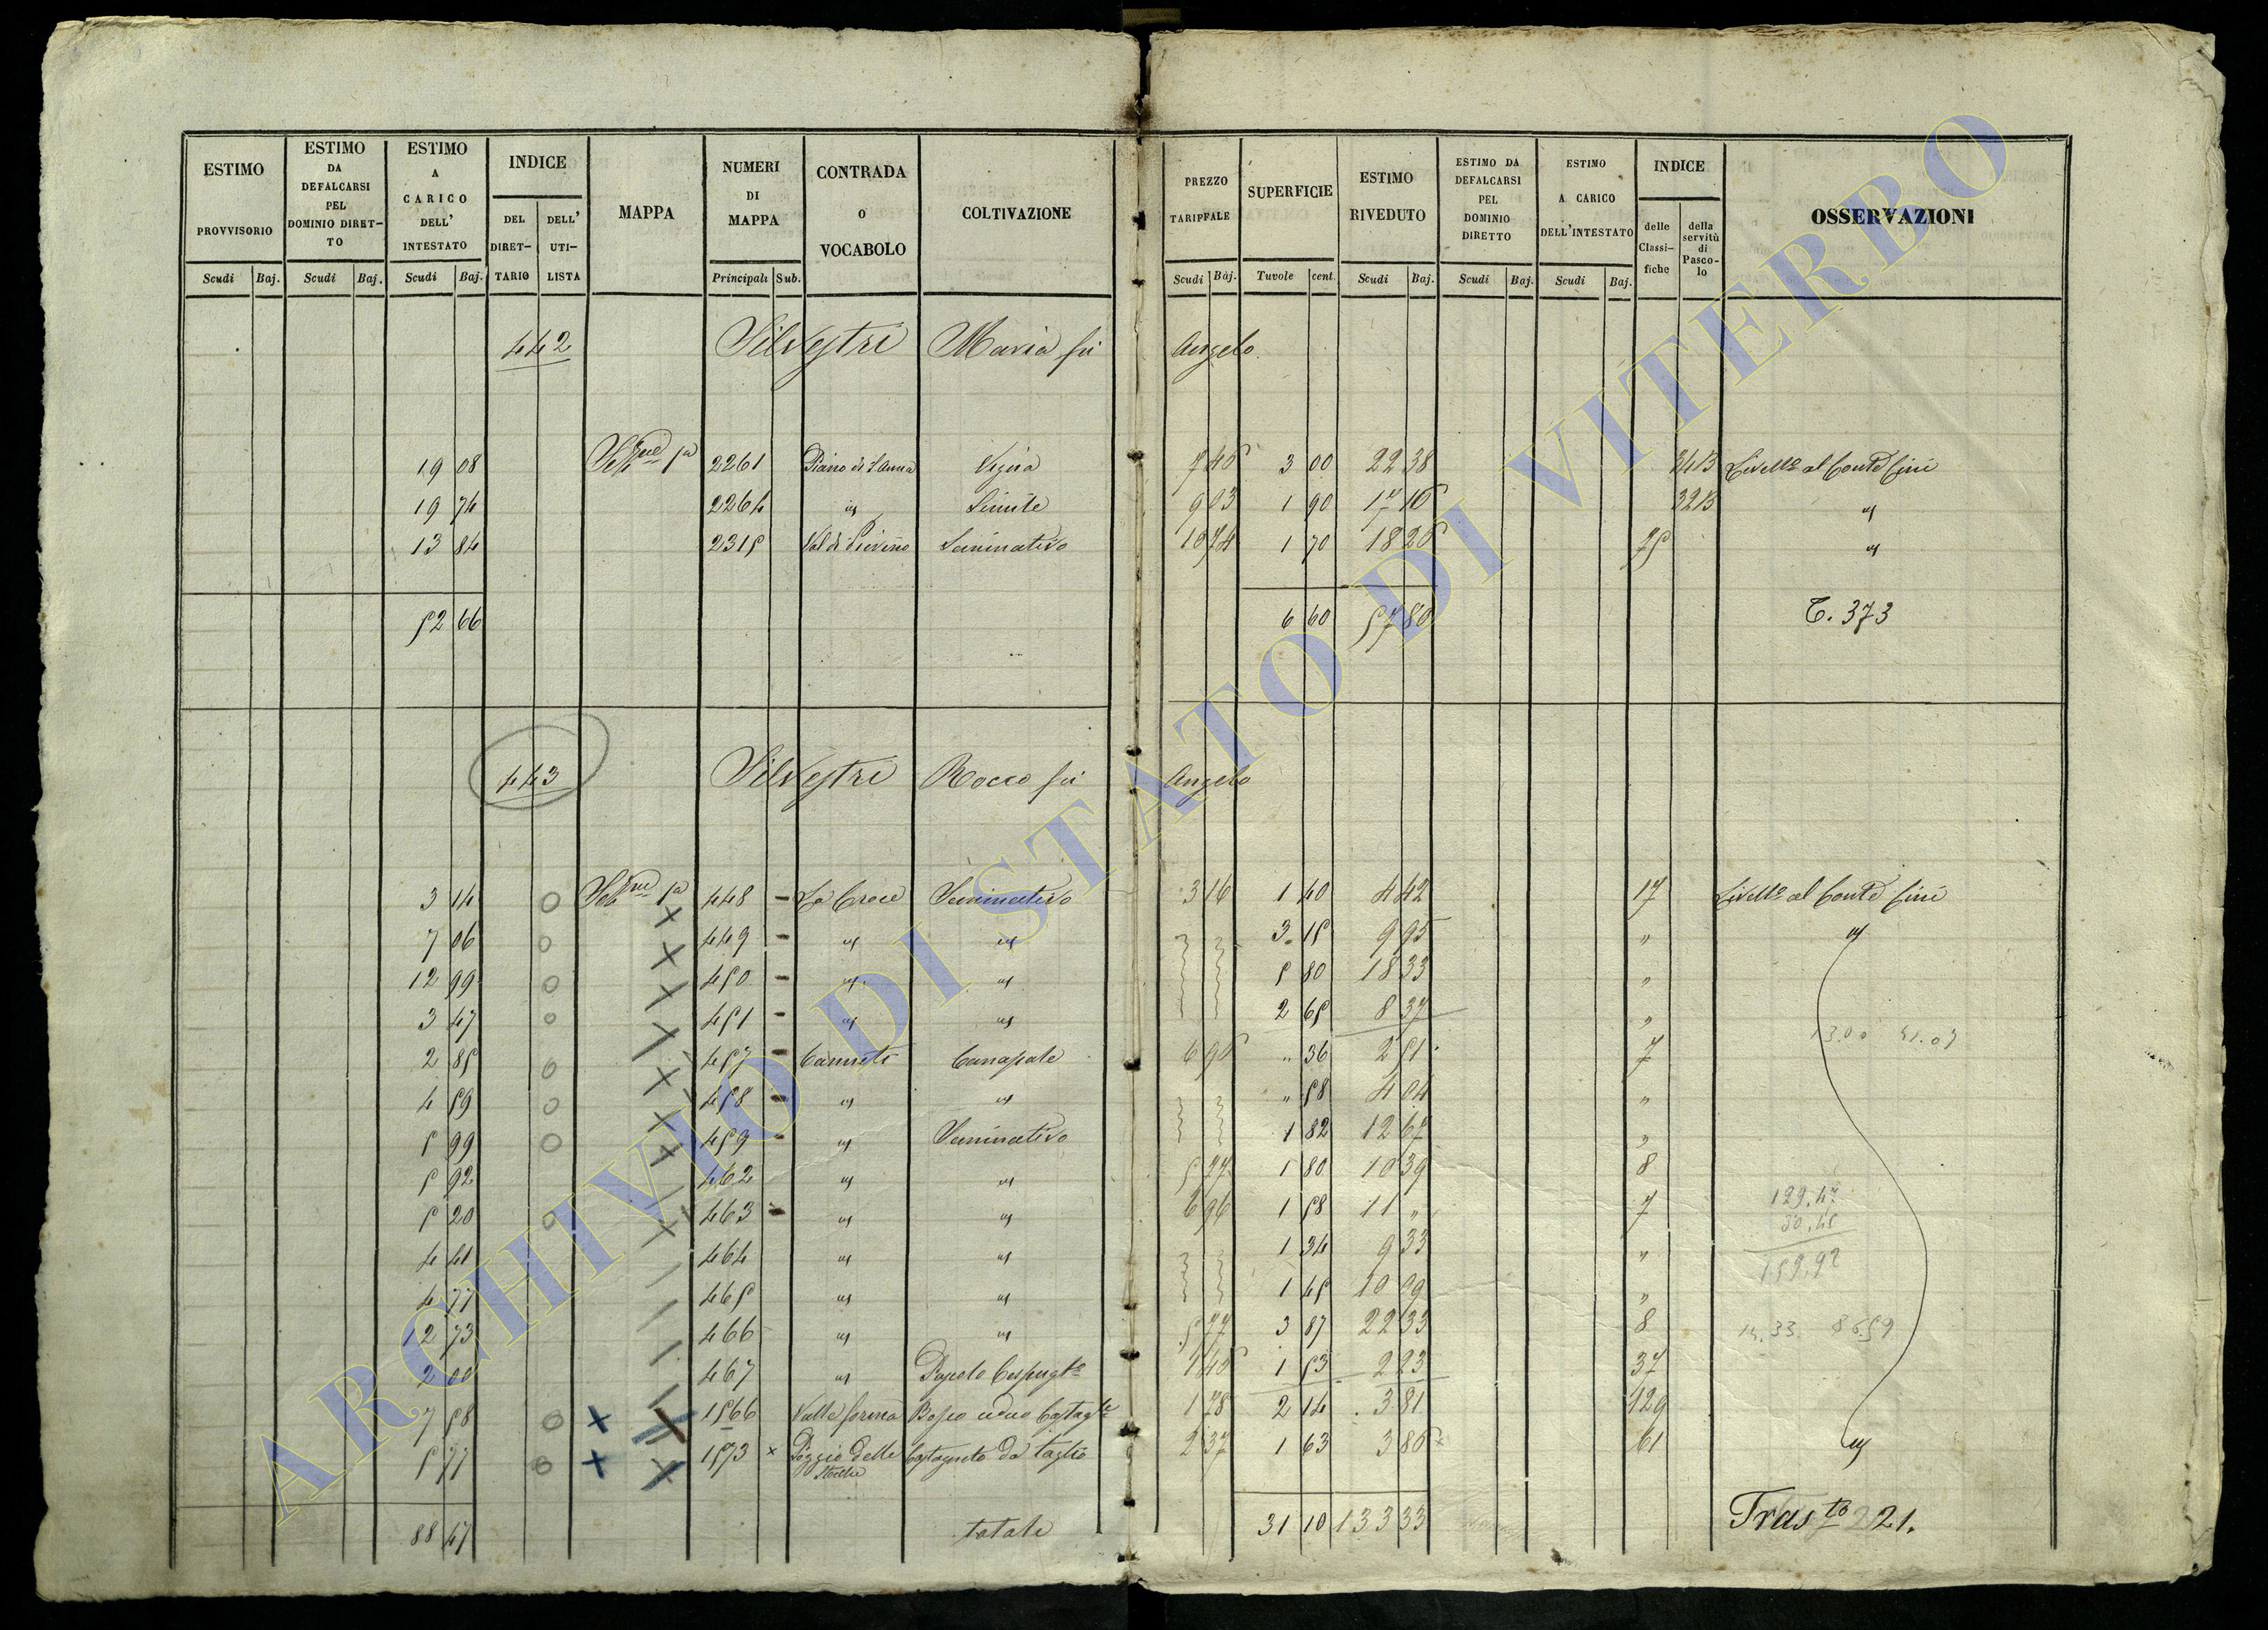 ESTIMO PROVVISORIO Scudi Baj.
ESTIMO DA DEFALCARSI PEL DOMINIO DIRET-TO Scudi Baj.
ESTIMO A CARICO DELL' INTESTATO Scudi Baj.
INDICE DEL DIRET-TARIO DELL' UTI-LISTA
MAPPA
NUMERI DI MAPPA Principali Sub.
CONTRADA O VOCABOLO
COLTIVAZIONE
PREZZO TARIFFALE Scudi Baj.
SUPERFICIE Tavole cent.
ESTIMO RIVEDUTO Scudi Baj.
ESTIMO DA DEFALCARSI PEL DOMINIO DIRETTO Scudi Baj.
ESTIMO A CARICO DELL'INTESTATO Scudi Baj.
INDICE delle Classi-fiche della servitù di Pasco-lo
OSSERVAZIONI
442 Silvestri Maria fu Angelo
19 08 2261 Vigna 7 46 3 00 22 38
19 74 2264 " Simile 9 03 1 90 17 16 "
13 84 2315 Seminativo 10 74 1 70 18 26 75 "
52 66 6 60 57 80 T. 373
443 Silvestri Rocco fu Angelo
3 14 448 La Croce Seminativo 3 16 1 40 4 42 17
7 06 449 " " 3 15 9 95 " "
12 99 450 " " 5 80 18 33 "
3 47 451 " " 2 65 8 37 "
2 85 457 Canneti Canapale 6 96 " 36 2 51 7
4 59 458 " " " 58 4 04 "
5 99 459 " Seminativo 1 82 12 67 "
5 92 462 " " 5 77 1 80 10 39 8
5 20 463 " " 6 96 1 58 11 " 7
4 41 464 " " 1 34 9 33 "
4 77 465 " " 1 45 10 09 "
12 73 466 " " 5 77 3 87 22 33 8
2 00 467 " 1 46 1 53 2 23 37
7 58 1566 1 78 2 14 3 81 129
5 77 1573 Poggio delle Castagneto da taglio 2 37 1 63 3 86 61 "
88 47 totale 31 10 133 33 Tras.to 221.
129.47
30.45
159.92
ARCHIVIO DI STATO DI VITERBO